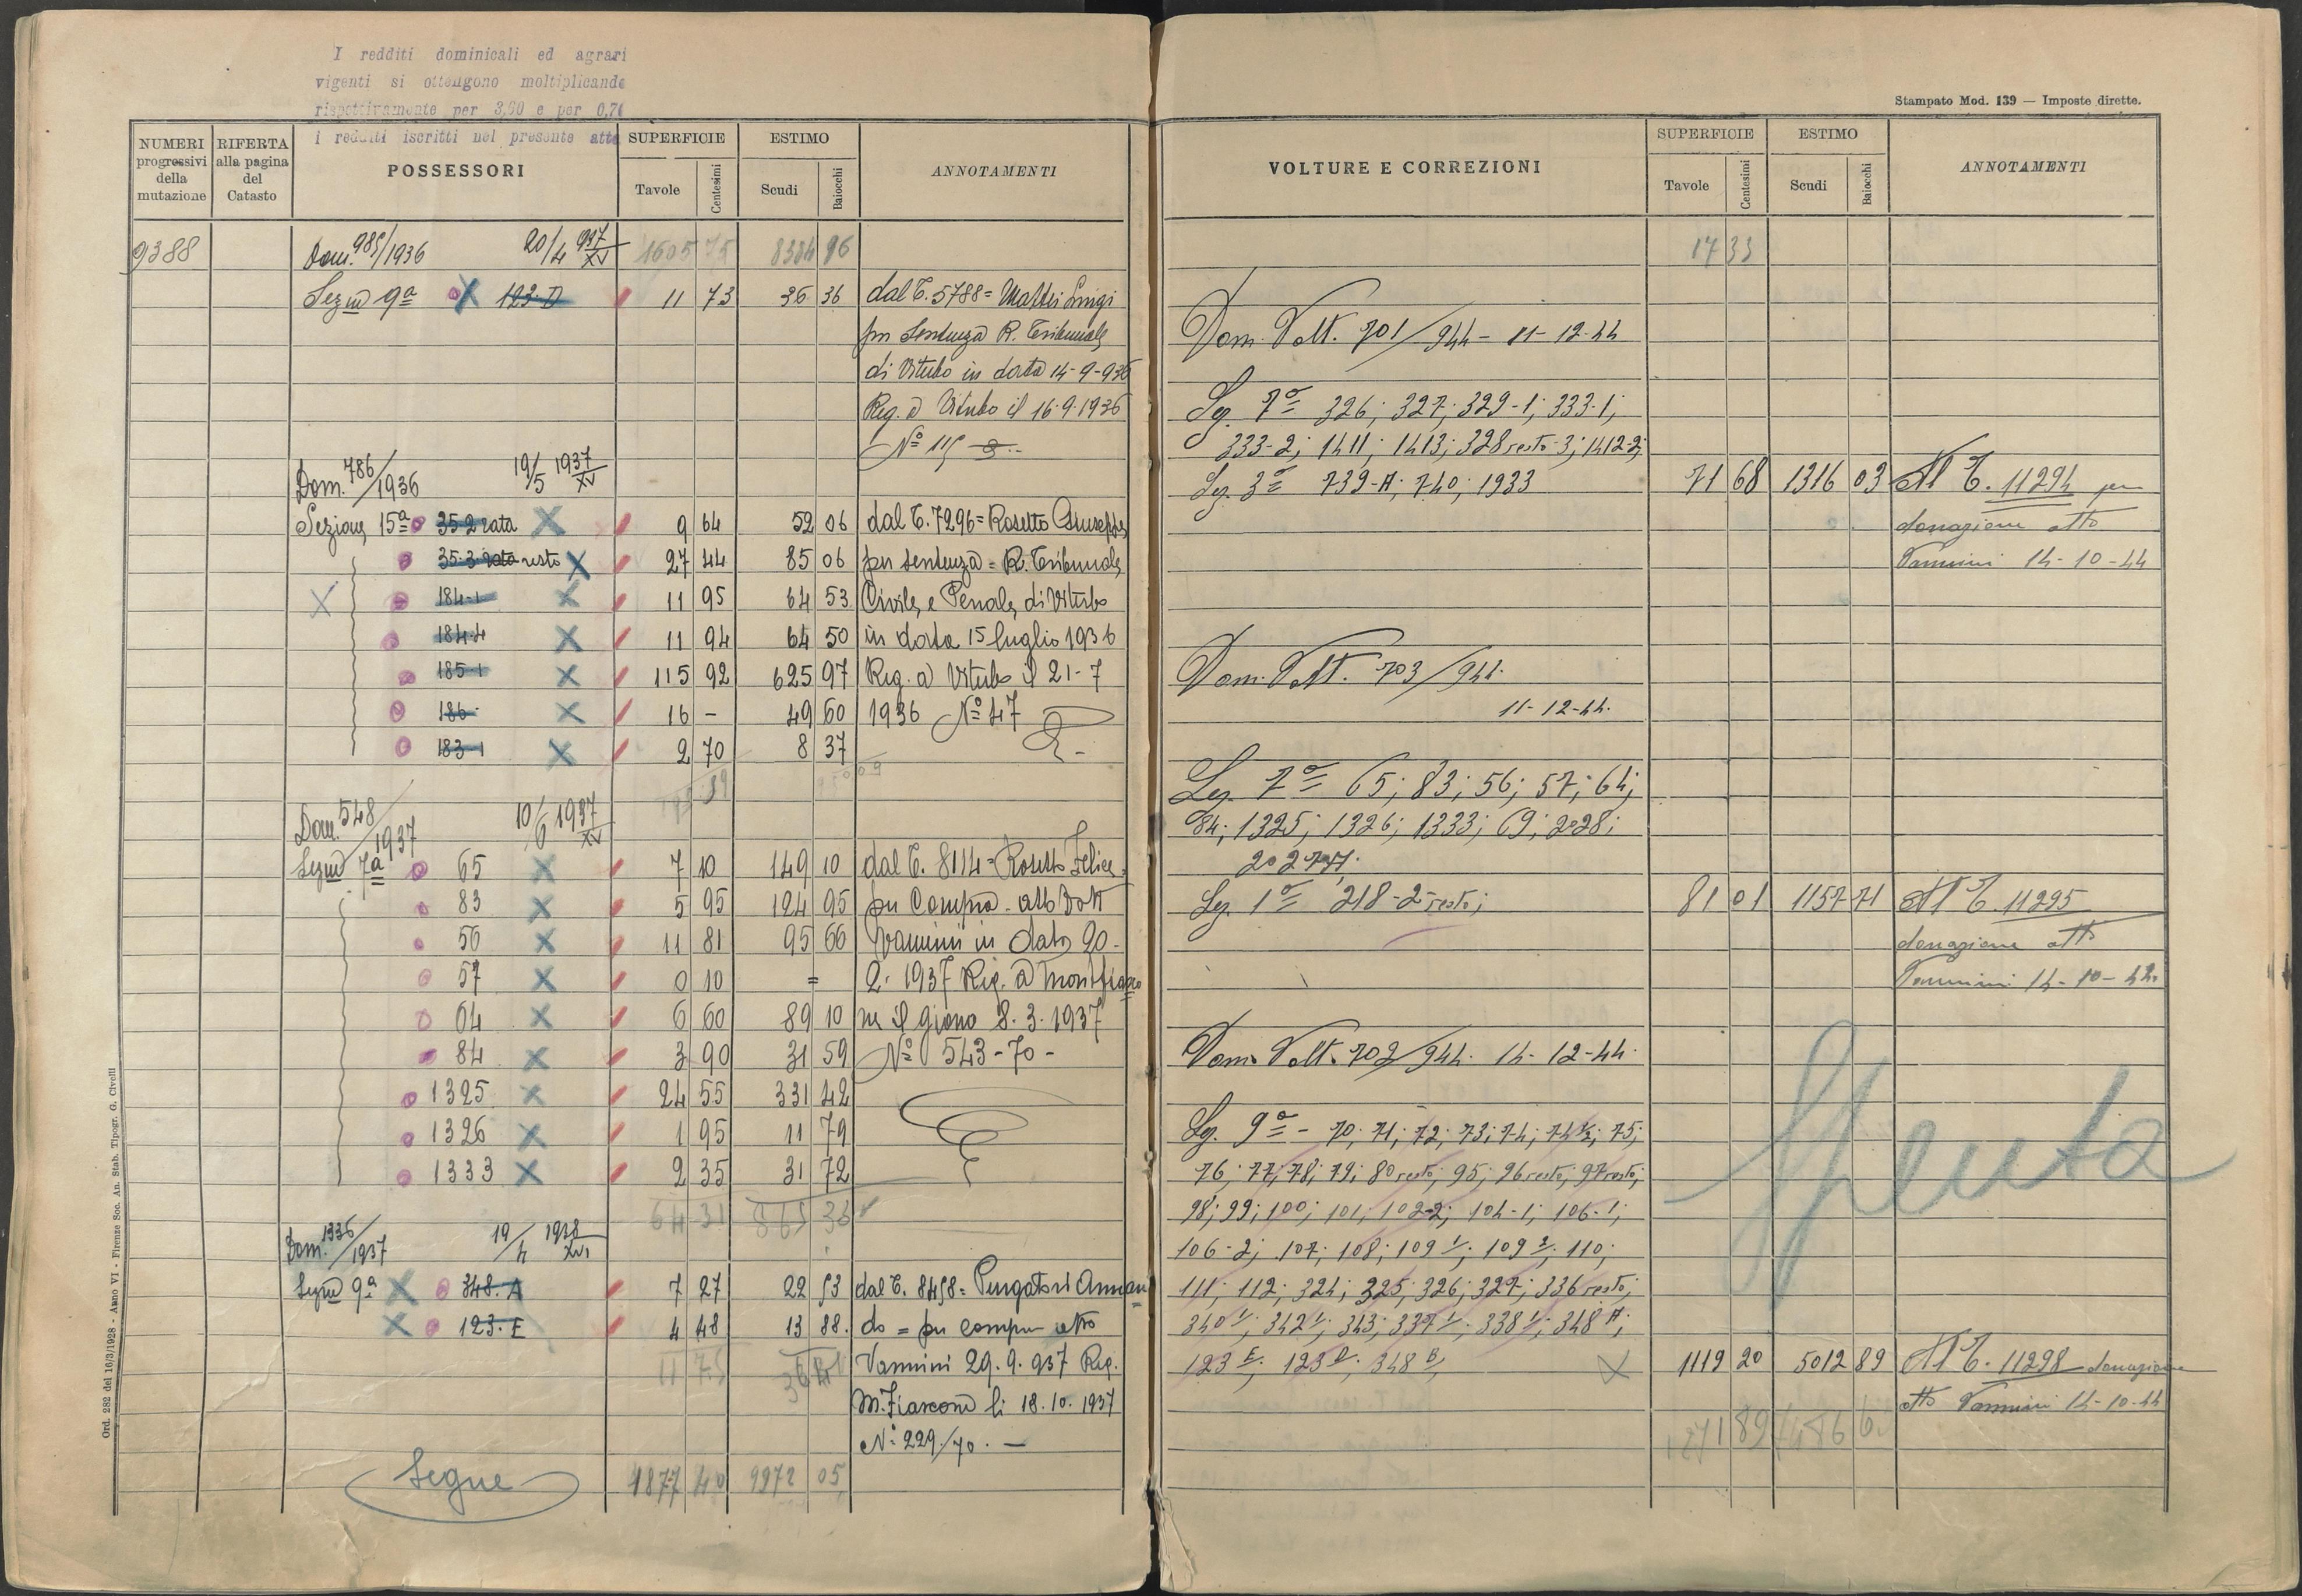 I redditi dominicali ed agrari
vigenti si ottengono moltiplicando
rispettivamente per 3,60 e per 0,7
i redditi iscritti nel presente atto
NUMERI progressivi della mutazione
RIFERTA alla pagina del Catasto
POSSESSORI
SUPERFICIE
Tavole Centesimi
ESTIMO
Scudi Baiocchi
ANNOTAMENTI
9388 Dom. 985/1936 20/4 937 XV 1605 75 8384 96
Sezne 9a 123-D 11 73 36 36 dal C. 5788 = Mattei Luigi
per Sentenza R. Tribunale
di Viterbo in data 14-9-936
Reg. a Viterbo il 16.9.1936
No 115
Dom. 786/1936 19/5 1937 XV
Sezione 15a 35-2 rata 9 64 52 06 dal C. 7296 = Rosetto Giuseppe
35-3 rata resto 27 44 85 06 per sentenza = R. Tribunale
184-1 11 95 64 53 Civile e Penale di Viterbo
184-4 11 94 64 50 in data 15 luglio 1936
185-1 115 92 625 97 Reg. a Viterbo il 21-7
186 16 - 49 60 1936 No 47
183-1 2 70 8 37
Dom. 548/1937 10/6 1937 XV
Sezne 7a 65 7 10 149 10 dal C. 8114 = Rosetto Felice
83 5 95 124 95 per Compra - atto Dott
56 11 81 95 66 Vannini in data 20-
57 0 10 = 2. 1937 Reg. a Montefiasco
64 6 60 89 10 ne il giorno 8. 3. 1937
84 3 90 31 59 No 543-70-
1325 24 55 331 42
1326 1 95 11 79
1333 2 35 31 72
64 31 865 33
Dom. 1336/1937 19/4 1938 XVI
Sezne 9a 348. A 7 27 22 53 dal C. 8458 = Purgatori Armando
123. E 4 48 13 88. do = per compra atto
11 75 36 41 Vannini 29. 9. 937 Reg.
M. Fiascone li 18. 10. 1937
No 229/70. -
Segue 1877 40 9972 05
Ord. 282 del 16/3/1928 - Anno VI - Firenze Soc. An. Stab. Tipogr. G. Civelli
Stampato Mod. 139 — Imposte dirette.
VOLTURE E CORREZIONI
SUPERFICIE
Tavole Centesimi
ESTIMO
Scudi Baiocchi
ANNOTAMENTI
17 33
Dom. Volt. 701/944 - 11-12-44
Sez. 7a 326; 327; 329-1; 333-1;
333-2; 1411; 1413; 328 resto-3; 1412-2;
Sez. 3a 739-A; 740; 1933 71 68 1316 03 Al C. 11294 per
donazione atto
Vannini 14-10-44
Dom. Volt. 703/944.
11-12-44.
Sez. 7a 65; 83; 56; 57; 64;
84; 1325; 1326; 1333; 69; 2028;
Sez. 1a 218-2 resto; 81 01 1157 71 Al C. 11295
donazione atto
Vannini 14-10-44
Dom. Volt. 702/944. 14-12-44.
Sez. 9a - 70; 71; 72; 73; 74; 74½; 75;
76; 77; 78; 79; 80 resto; 95; 96 resto; 97 resto;
98; 99; 100; 101; 102-2; 104-1; 106-1;
106-2; 107; 108; 109 1; 109 2; 110;
111; 112; 324; 325; 326; 327; 336 resto;
340 1; 342 1; 343; 337 1; 338 1; 348 A;
123 E; 123 D; 348 B; 1119 20 5012 89 Al C. 11298 donazione
atto Vannini 14-10-44
1271 89
Spenta